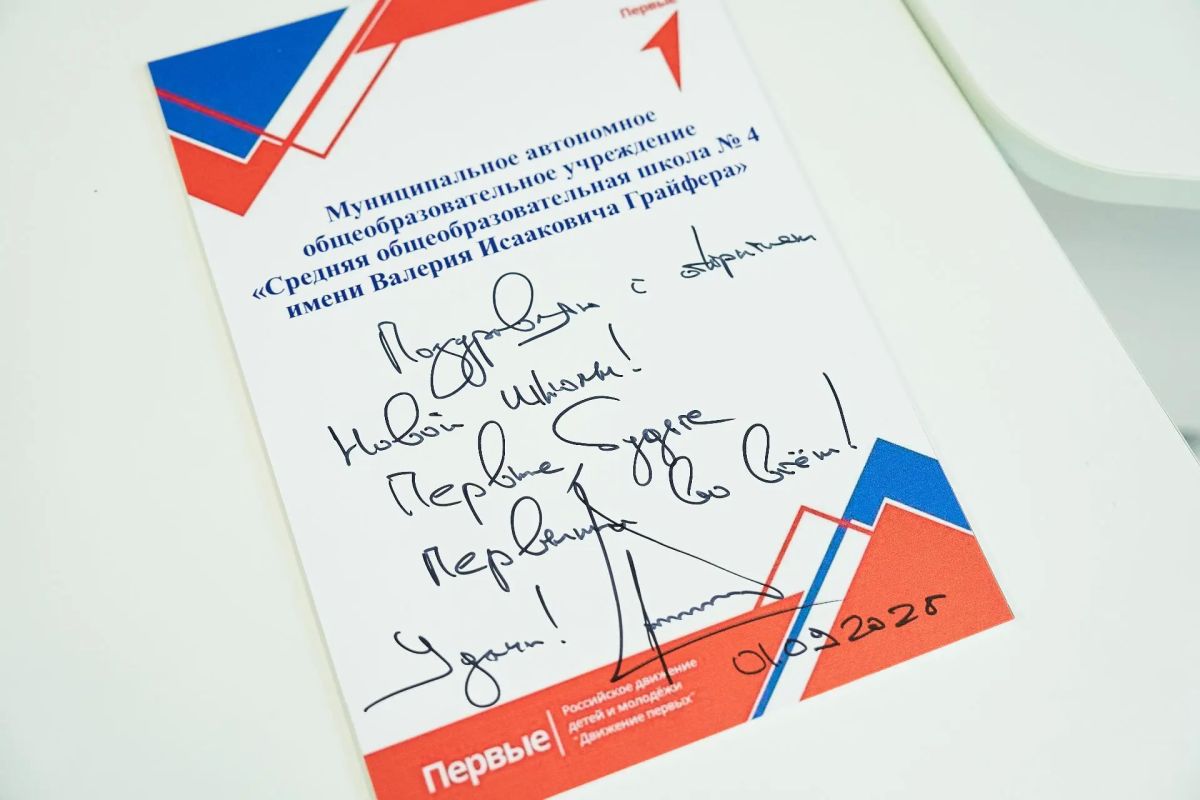 Первые
Муниципальное автономное
общеобразовательное учреждение
«Средняя общеобразовательная школа № 4
имени Валерия Исааковича Грайфера»
Поздравляю с открытием
Новой школы!
Первые будьте
Первыми во всём!
Удачи!
01.09.2025
Первые
Российское движение
детей и молодёжи
"Движение первых"